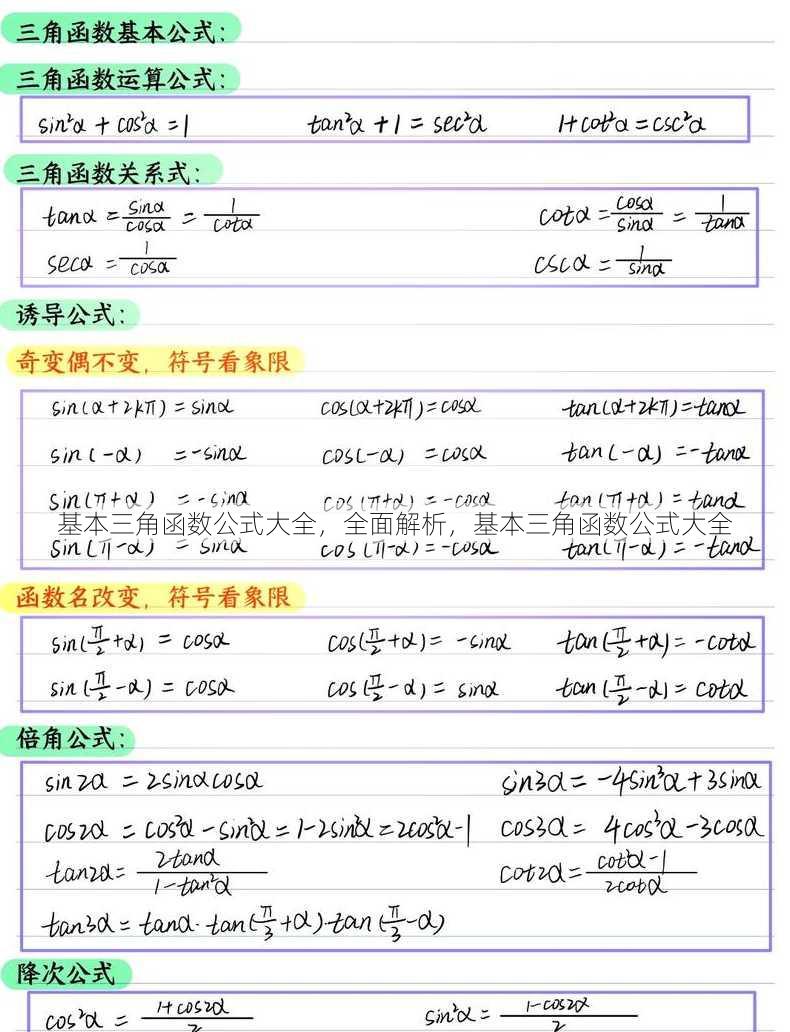 三角函数基本公式：
三角函数运算公式：
sin²α + cos²α = 1 tan²α + 1 = sec²α 1 + cot²α = csc²α
三角函数关系式：
tanα = sinα/cosα = 1/cotα cotα = cosα/sinα = 1/tanα
secα = 1/cosα cscα = 1/sinα
诱导公式：
奇变偶不变，符号看象限
sin(α+2kπ) = sinα cos(α+2kπ) = cosα tan(α+2kπ) = tanα
sin(-α) = -sinα cos(-α) = cosα tan(-α) = -tanα
sin(π+α) = -sinα cos(π+α) = -cosα tan(π+α) = tanα
基本三角函数公式大全，全面解析，基本三角函数公式大全
sin(π-α) = sinα cos(π-α) = -cosα tan(π-α) = -tanα
函数名改变，符号看象限
sin(π/2+α) = cosα cos(π/2+α) = -sinα tan(π/2+α) = -cotα
sin(π/2-α) = cosα cos(π/2-α) = sinα tan(π/2-α) = cotα
倍角公式：
sin2α = 2sinαcosα sin3α = -4sin³α+3sinα
cos2α = cos²α - sin²α = 1-2sin²α = 2cos²α-1 cos3α = 4cos³α-3cosα
tan2α = 2tanα/1-tan²α cot2α = cot²α-1/2cotα
tan3α = tanα·tan(π/3+α)·tan(π/3-α)
降次公式
cos²α = 1+cos2α/2 sin²α = 1-cos2α/2